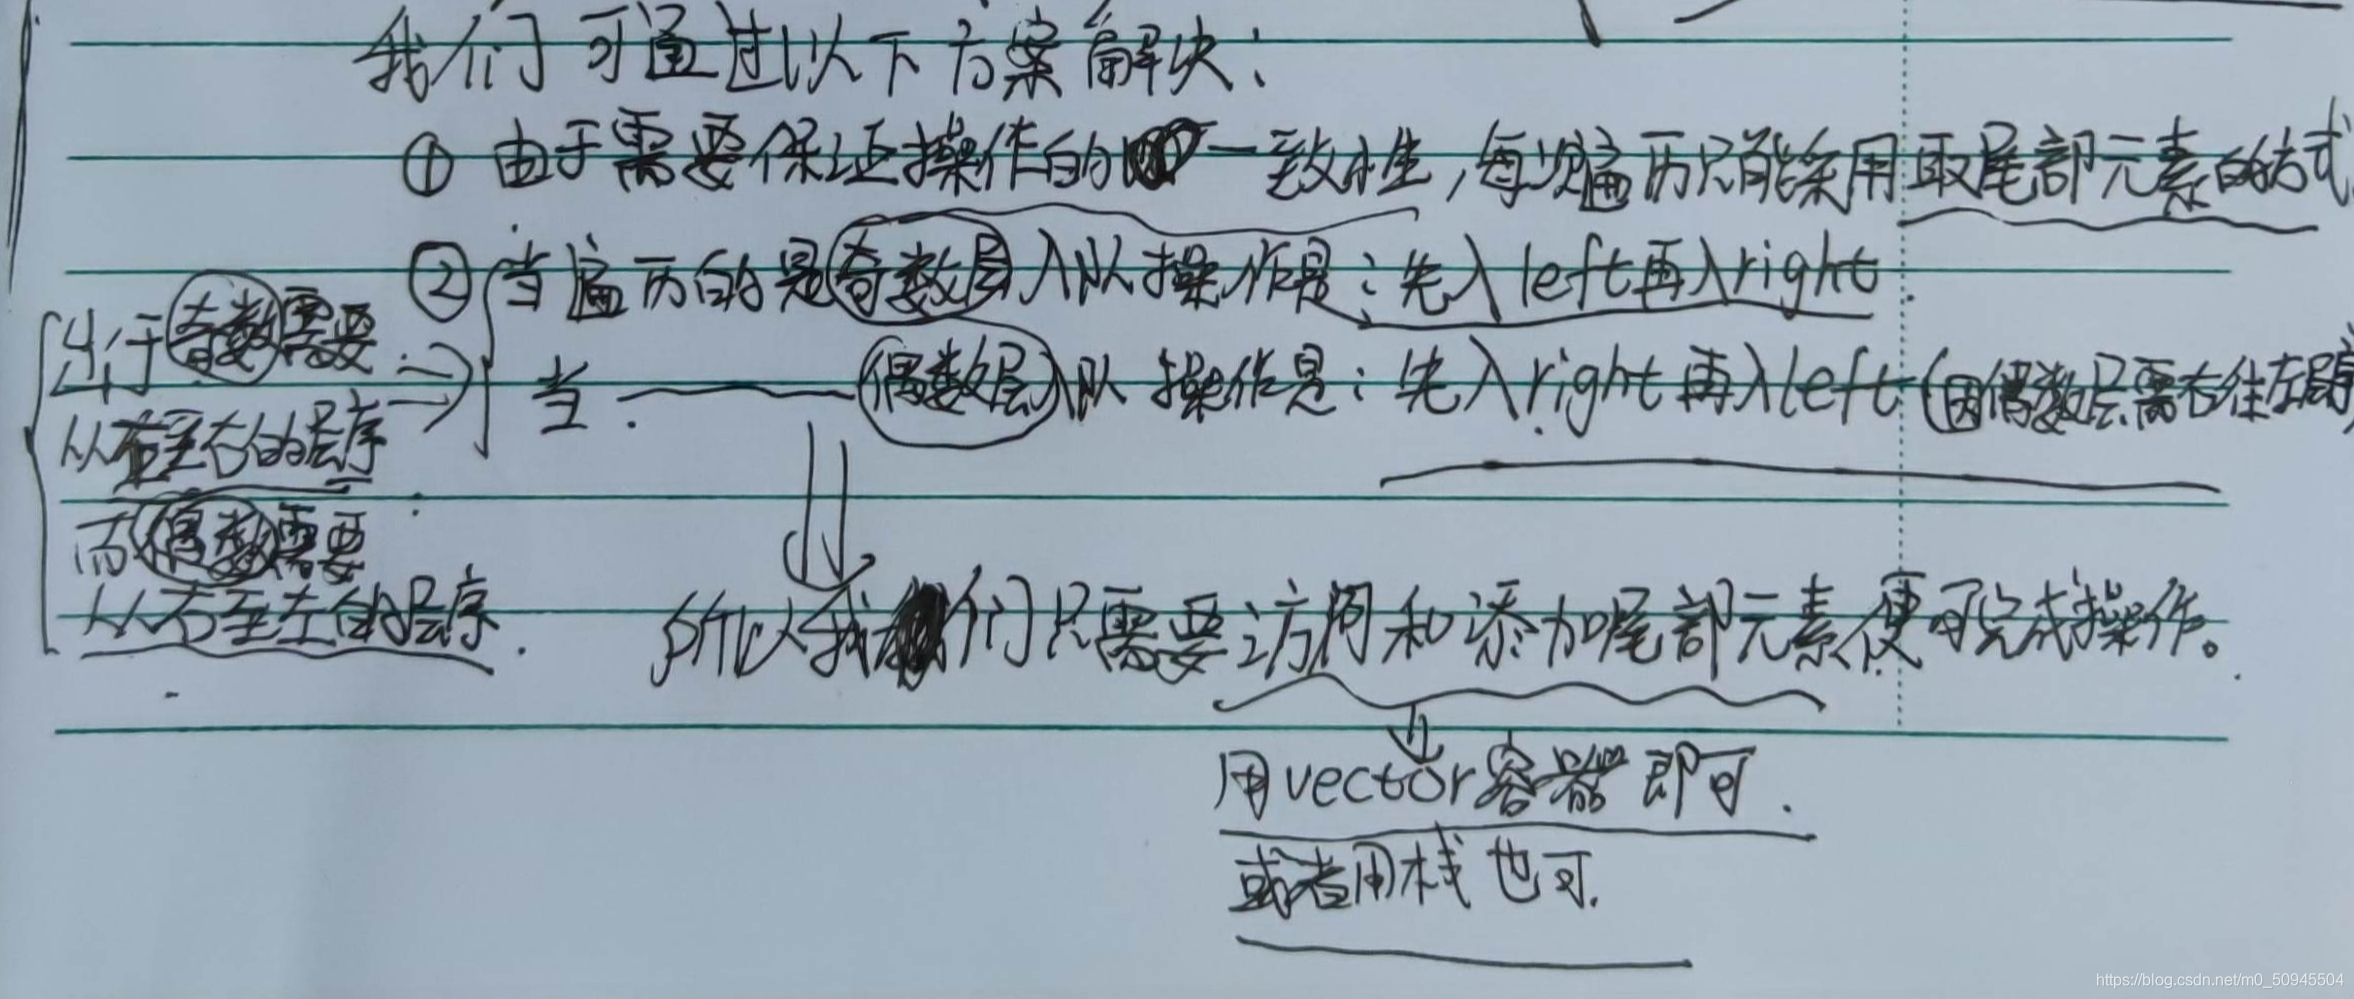 我们可通过以下方案解决：
① 由于需要保证操作的一致性，每次遍历只能采用取尾部元素的方式
② 当遍历的是奇数层入队操作是：先入left再入right.
当 —— 偶数层入队操作是：先入right再入left (因偶数层需右往左层序)
出于奇数需要
从左至右的层序
而偶数需要
从右至左的层序.
所以我们只需要访问和添加尾部元素便可完成操作。
用vector容器即可.
或者用栈也可.
https://blog.csdn.net/m0_50945504